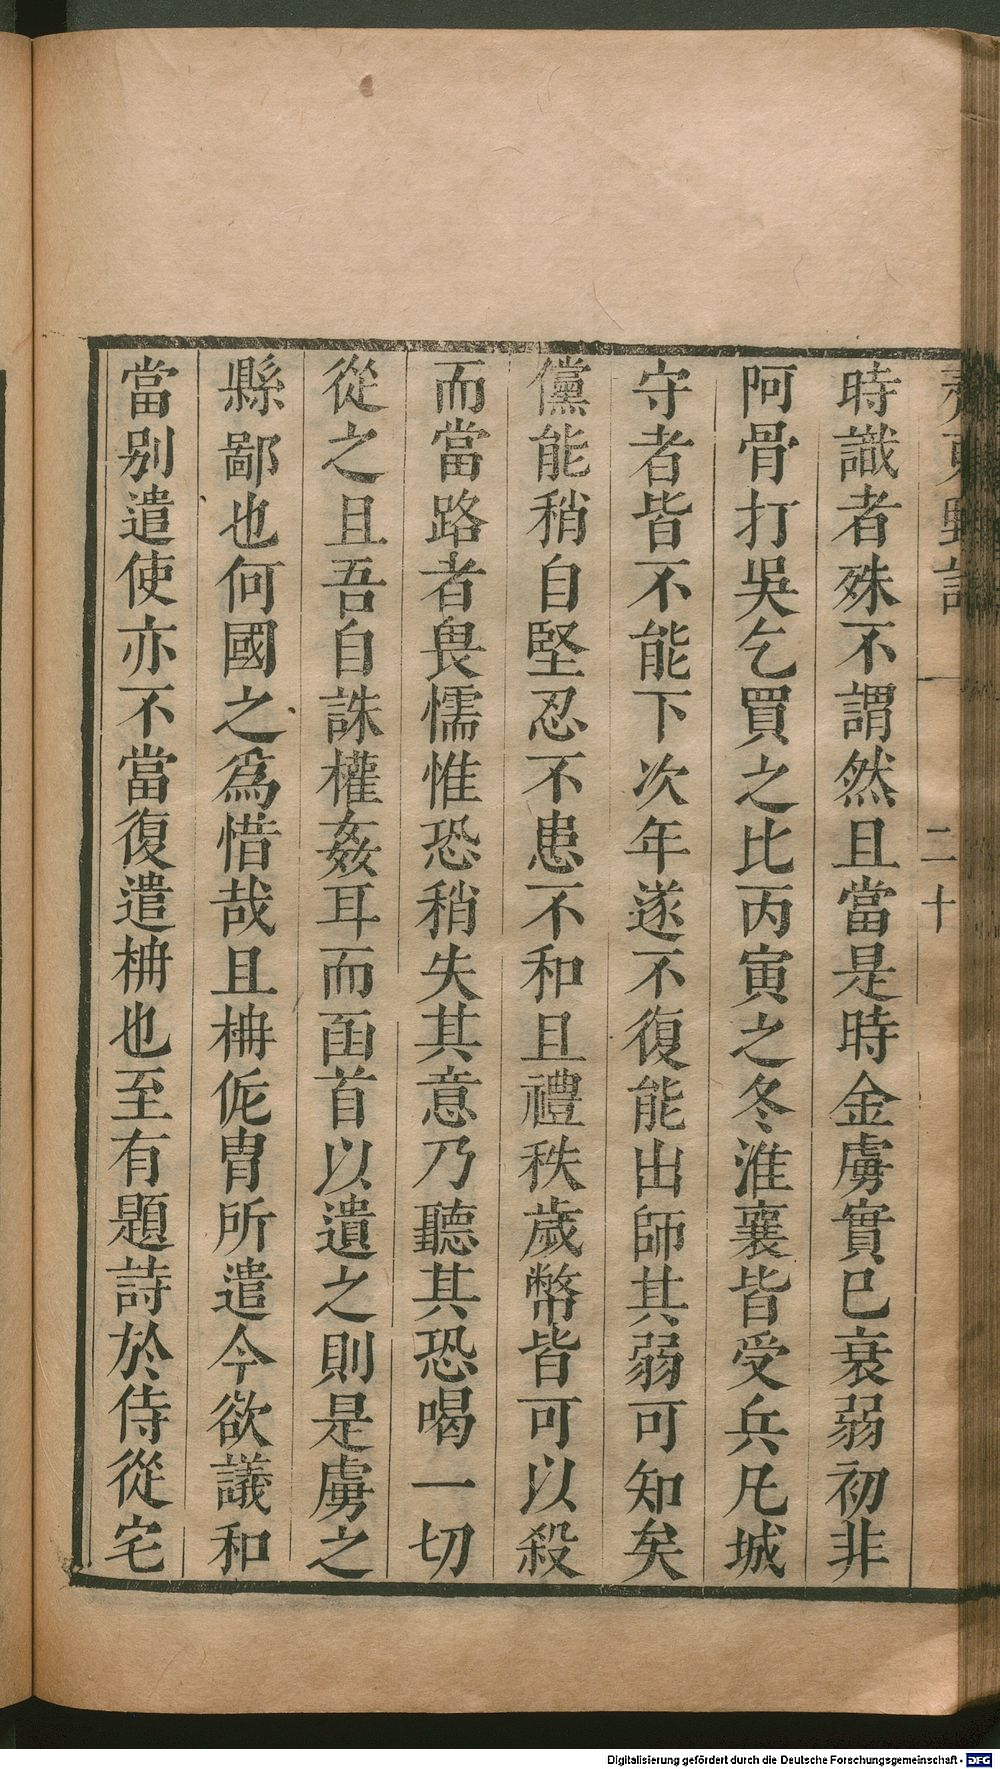 齊東野語
二十
時識者殊不謂然且當是時金虜實已衰弱初非
阿骨打吳乞買之比丙寅之冬淮襄皆受兵凡城
守者皆不能下次年遂不復能出師其弱可知矣
儻能稍自堅忍不患不和且禮秩歲幣皆可以殺
而當路者畏懦惟恐稍失其意乃聽其恐喝一切
從之且吾自誅權姦耳而函首以遺之則是虜之
縣鄙也何國之爲惜哉且柟侂胄所遣今欲議和
當别遣使亦不當復遣柟也至有題詩於侍從宅
Digitalisierung gefördert durch die Deutsche Forschungsgemeinschaft - DFG